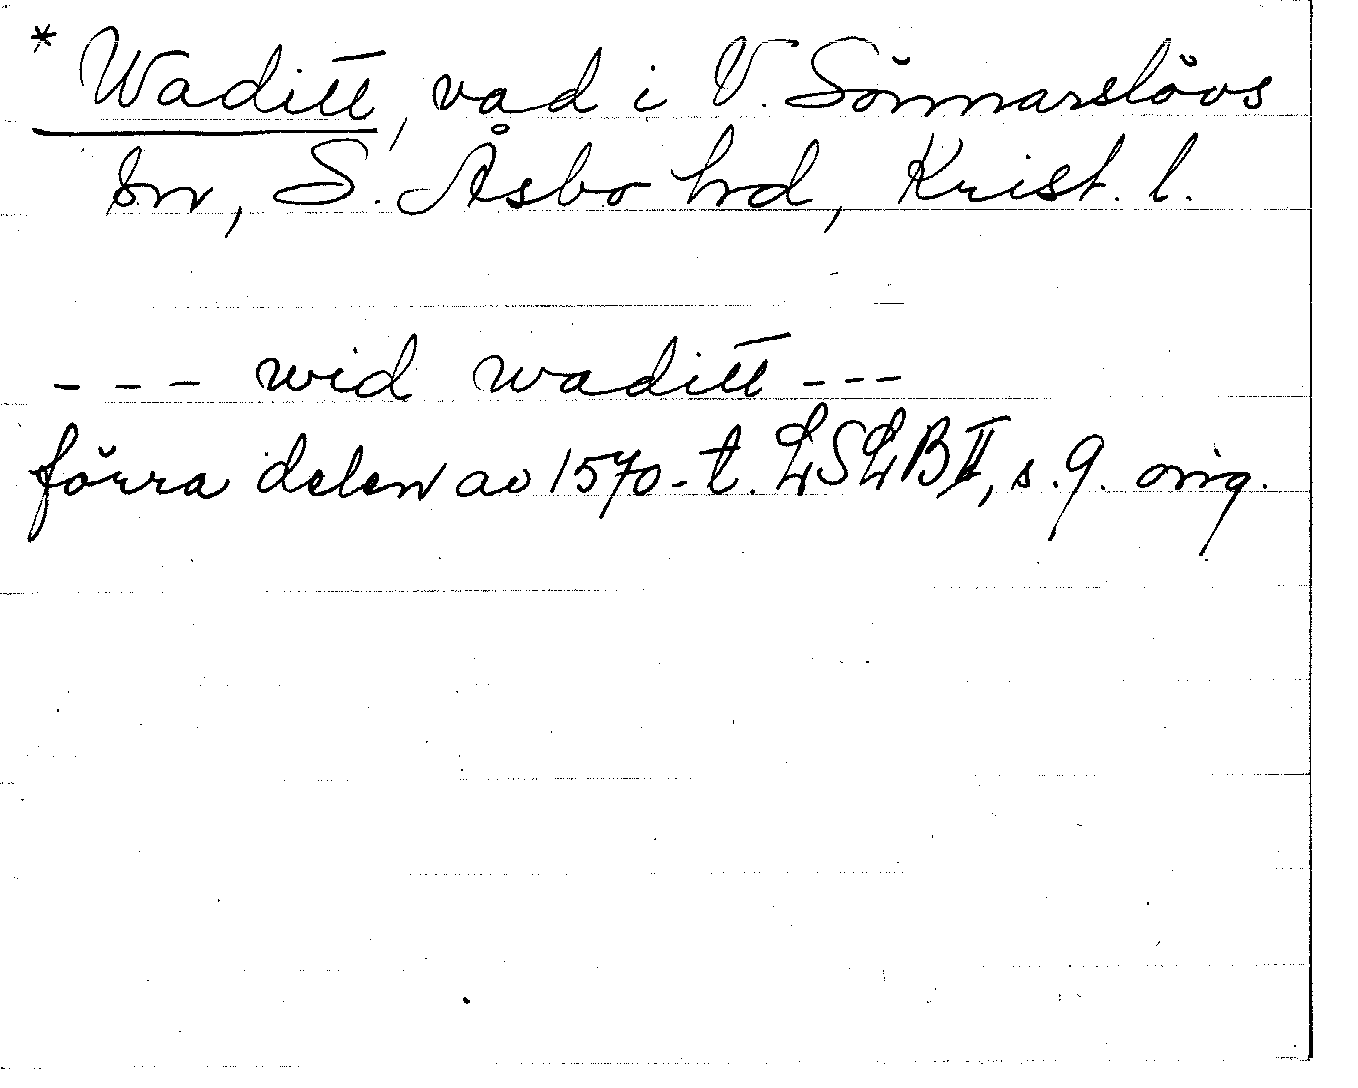 * Waditt, vad i V. Sönnarslövs
sn, S. Åsbo hrd, Krist. l.
--- wid waditt ---
förra delen av 1570-t. LSLB II, s. 9. orig.